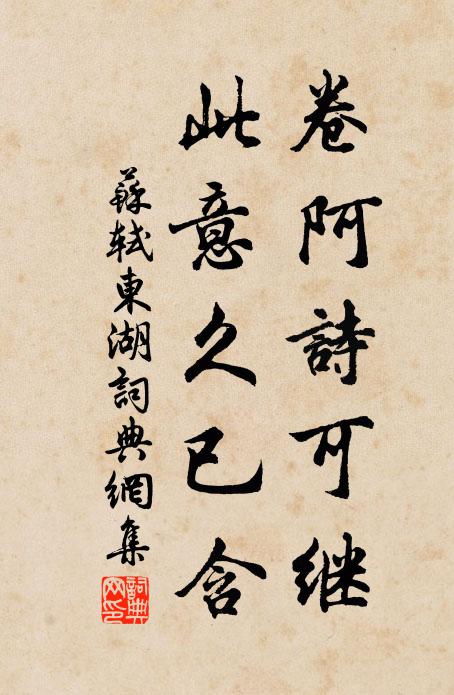 卷阿詩可继
此意久已含
蘇軾東湖詞典網集
詞典